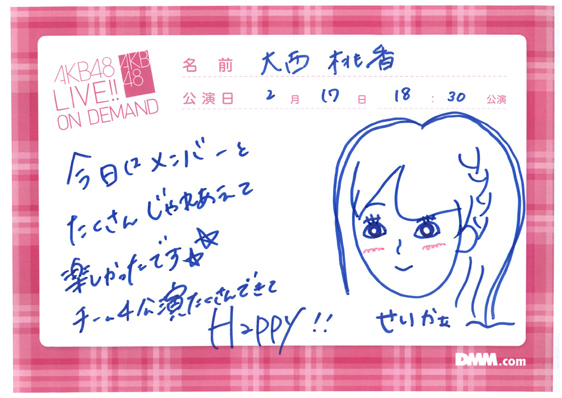 AKB48
LIVE!!
ON DEMAND
AKB
48
名前 大西桃香
公演日 2月17日 18:30 公演
今日はメンバーと
たくさんじゃれあえて
楽しかったです☆☆
チーム4公演たくさんできて
Happy!!
せいかぁ
DMM.com